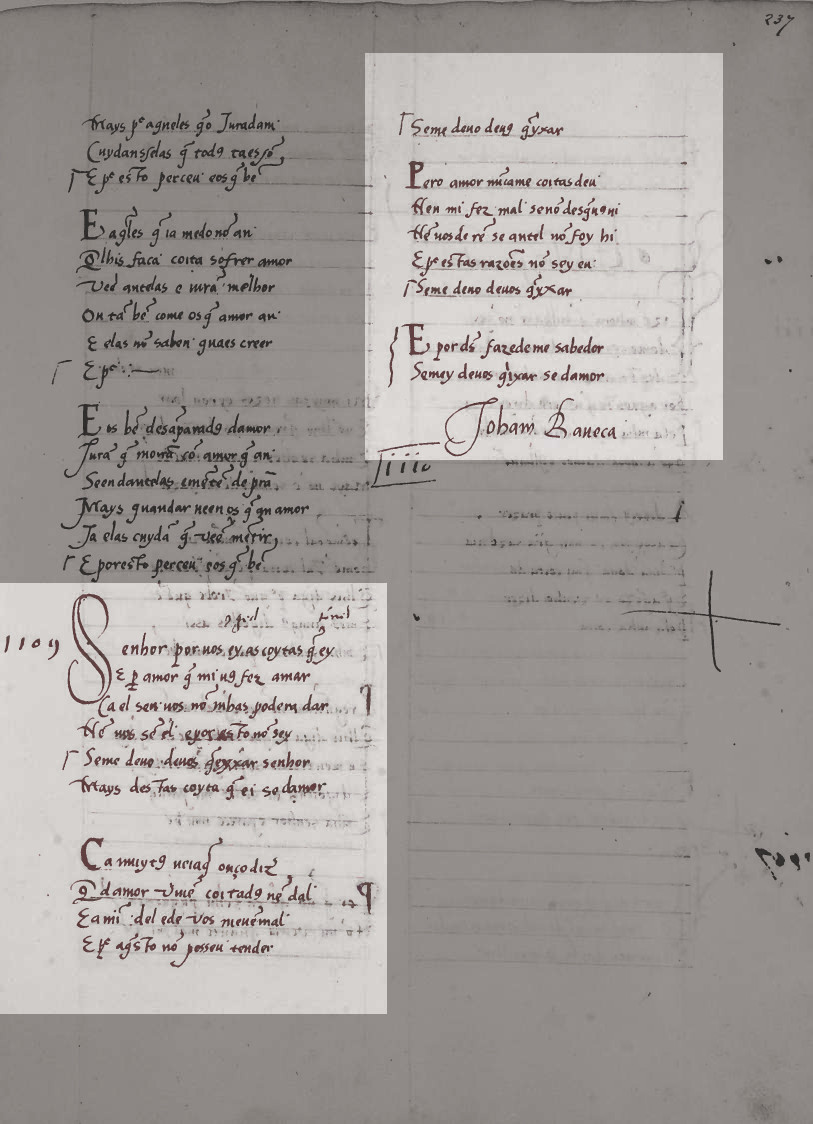 237
Mays pᵉ aqneles q̃o Juradam
Cuydansselas q̃ todꝯ taes sõ
E pᵉ esto perceu eos q̃ bẽ
E aq̃les q̃ ia medo nõ an
Q̃lhis faca coita sofrer amor
Veẽ antelas e iurã melhor
On tã bẽ come os q̃ amor an
E elas nõ saben quaes creer
E pᵉ
E os bẽ desaparadꝯ damor
Jurã q̃ morrẽ cõ amor q̃ an
Seendantelas emẽtẽ de prã
Mays quandar neen os q̃ qn amor
Ja elas cuydã q̃ veẽ mẽtir
E poresto perceu eos q̃ bẽ
1109
Senhor por uos ey as coytas q̃ ey
E ꝑ amor q̃ mi uꝯ fez amar
Ca el sen uos nõ mhas podera dar
Nẽ uos sẽ el e por esto nõ sey
Seme deuo deuos q̃yxar senhor
Mays destas coyta q̃ ei se damor
Ca muytꝯ ueiaq̃ ouço diz̃
Q̃ damor viuẽ coitadꝯ nẽ dal
E a mi del e de vos meuẽ mal
E pᵉ aq̃sto nõ posseu tender
Seme deuo deuꝯ q̃yxar
Pero amor nũcame coitas deu
Nen mi fez mal senõ desq̃ uꝯ ui
Nẽ uos de rẽ se antel nõ foy hi
E pᵉ estas razoẽs nõ sey eu
Seme deuo deuos q̃yxar
E por dš fazedeme sabedor
Semey deuos q̃ixar se damor
Joham Baueca